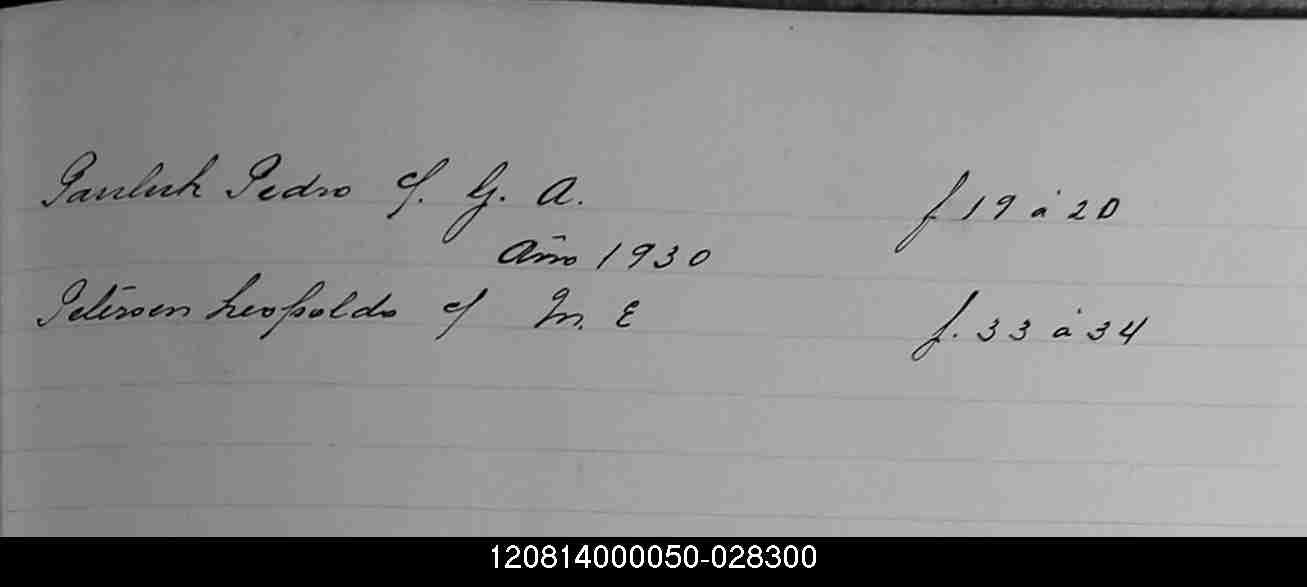 Pauluk Pedro c/. G. A. f 19 á 20
Año 1930
Petersen Leopoldo c/ M. E f. 33 á 34
120814000050-028300